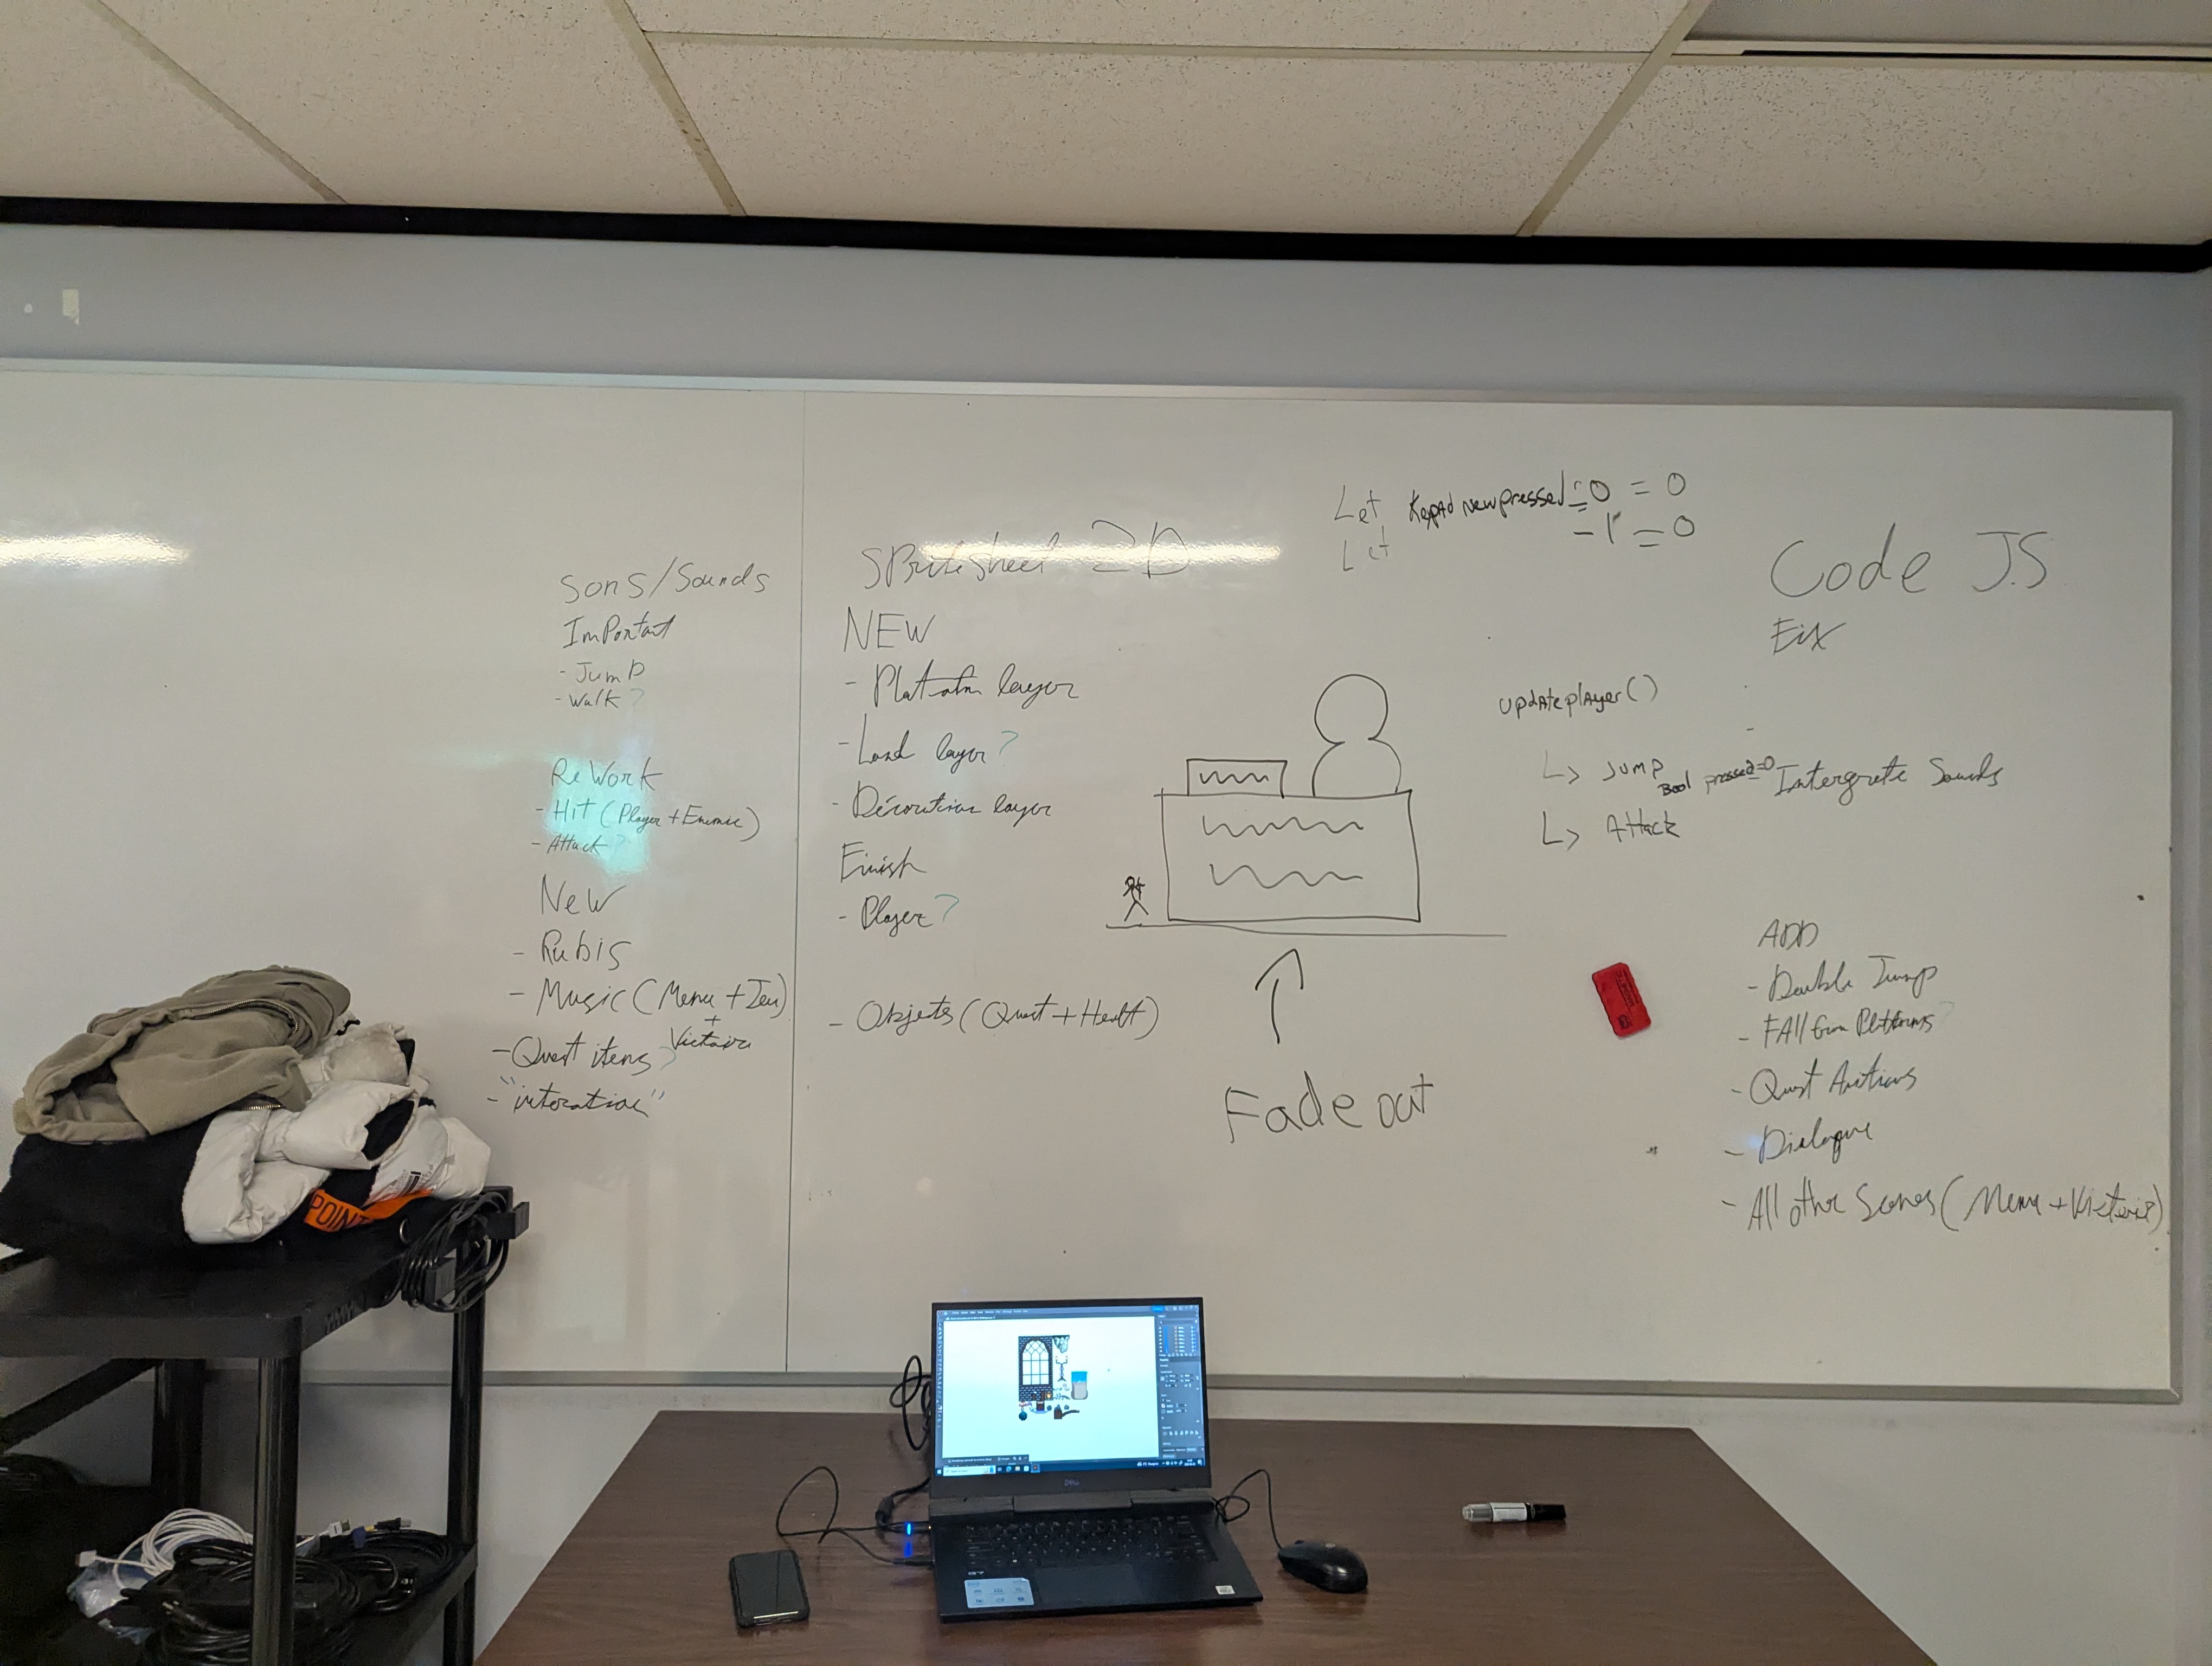 Sons/Sounds
Important
- Jump
- Walk?
ReWork
- Hit (Player + Enemie)
- Attack?
New
- Rubis
- Music (Menu + Jeu)
+
Victoire
- Quest items?
- "interation"
SPritesheet 2D
NEW
- Platform layer
- Land layer?
- Décoration layer
Finish
- Player?
- Objects (Quest + Healt)
Let KeypAd newpressed = 0 = 0
-1 = 0
Let
updAteplAyer()
↳ Jump
Bool pressed=0
↳ Attack
Fade out
Code JS
Fix
- Intergrete Sounds
ADD
- Double Jump
- FAll from Platforms?
- Quest Anctions
- Dialogue
- All othr Scenes (Menu + Victoire)
POINT
DELL
G7